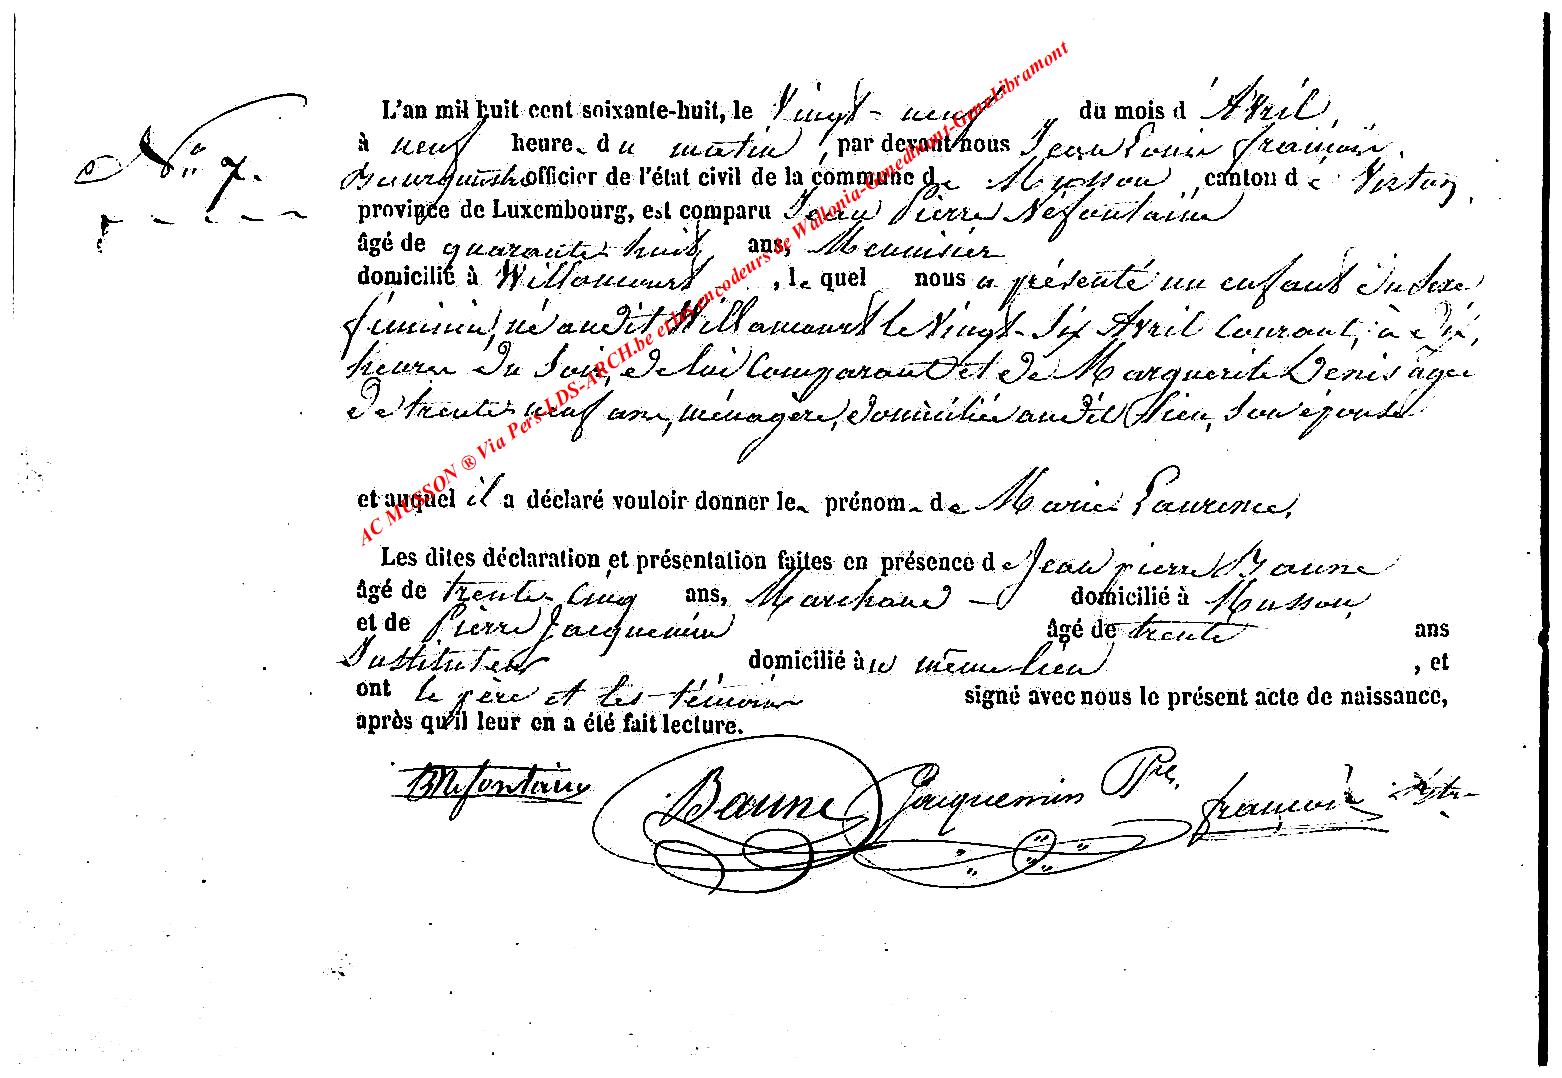 L'an mil huit cent soixante-huit, le Vingt-neuf du mois d'Avril,
N° 7.
à neuf heure du matin, par devant nous Jean Louis françois,
Bourgmestre officier de l'état civil de la commune de Musson, canton de Virton,
province de Luxembourg, est comparu Jean Pierre Néfontaine
âgé de quarante huit ans, Menuisier
domicilié à Willancourt, le quel nous a présenté un enfant du sexe
féminin, né audit Willancourt le Vingt-six Avril courant, à dix
heures du soir, de lui comparant et de Marguerite Denis âgée
de trente neuf ans, ménagère, domiciliée audit lieu, son épouse
et auquel il a déclaré vouloir donner le prénom de Marie Laurence.
Les dites déclaration et présentation faites en présence de Jean pierre Baune
âgé de trente-cinq ans, Marchand domicilié à Musson
et de Pierre Jacquemin âgé de trente ans
Instituteur domicilié au même lieu, et
ont le père et les témoins signé avec nous le présent acte de naissance,
après qu'il leur en a été fait lecture.
Nefontaine Baune Jacquemin Pre françois
AC MUSSON ® Via Pers-LDS-ARCH.be et les encodeurs de Wallonia-Genedinant-GeneLibramont